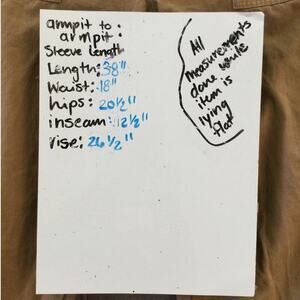 armpit to:
armpit:
Sleeve Length
Length: 38"
Waist: 18"
hips: 20 1/2"
inseam: 12 1/2"
rise: 26 1/2"
All
measurements
done while
item is
lying
flat